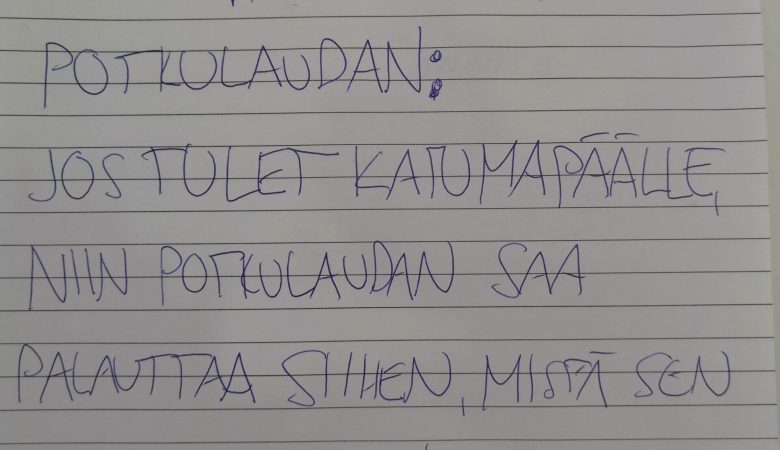 POTKULAUDAN:
JOS TULET KATUMAPÄÄLLE,
NIIN POTKULAUDAN SAA
PALAUTTAA SIIHEN, MISTÄ SEN